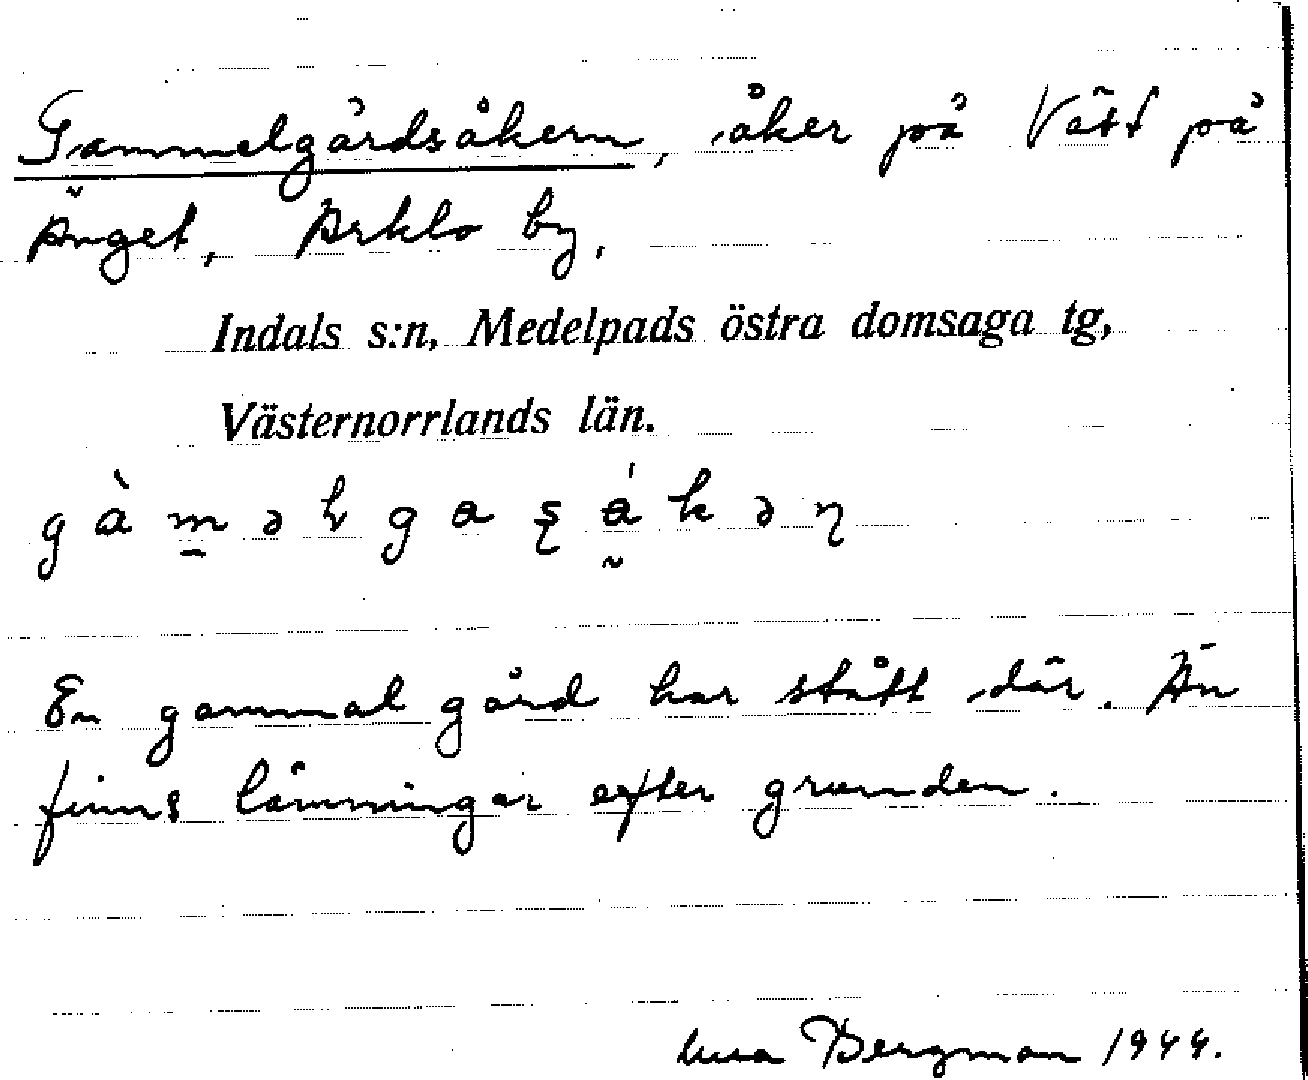 Gammelgårdsåkern, åker på Väst på
Änget, Arklo by,
Indals s:n, Medelpads östra domsaga tg,
Västernorrlands län.
En gammal gård har stått där. Än
finns lämningar efter grunden.
Bergman 1944.